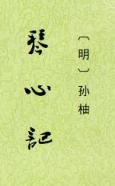 〔明〕孙柚
琴心記